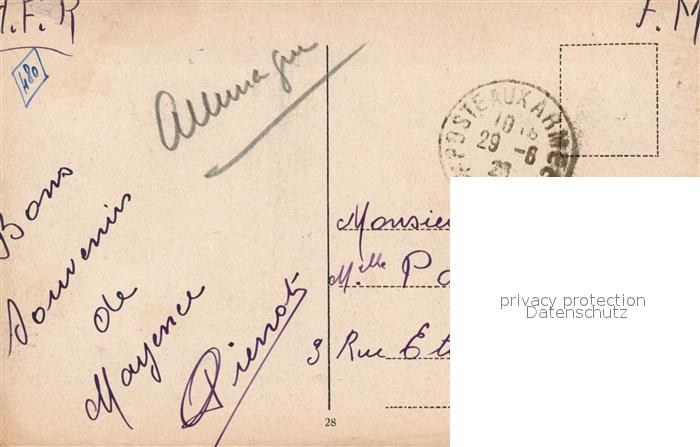 A.F.R
F.M
480
Allemagne
POSTE AUX ARMEES
29 -6
Bons
Souvenirs
de
Mayence
Pierrot
Monsie
Mlle Po
3 Rue Et
privacy protection
Datenschutz
28